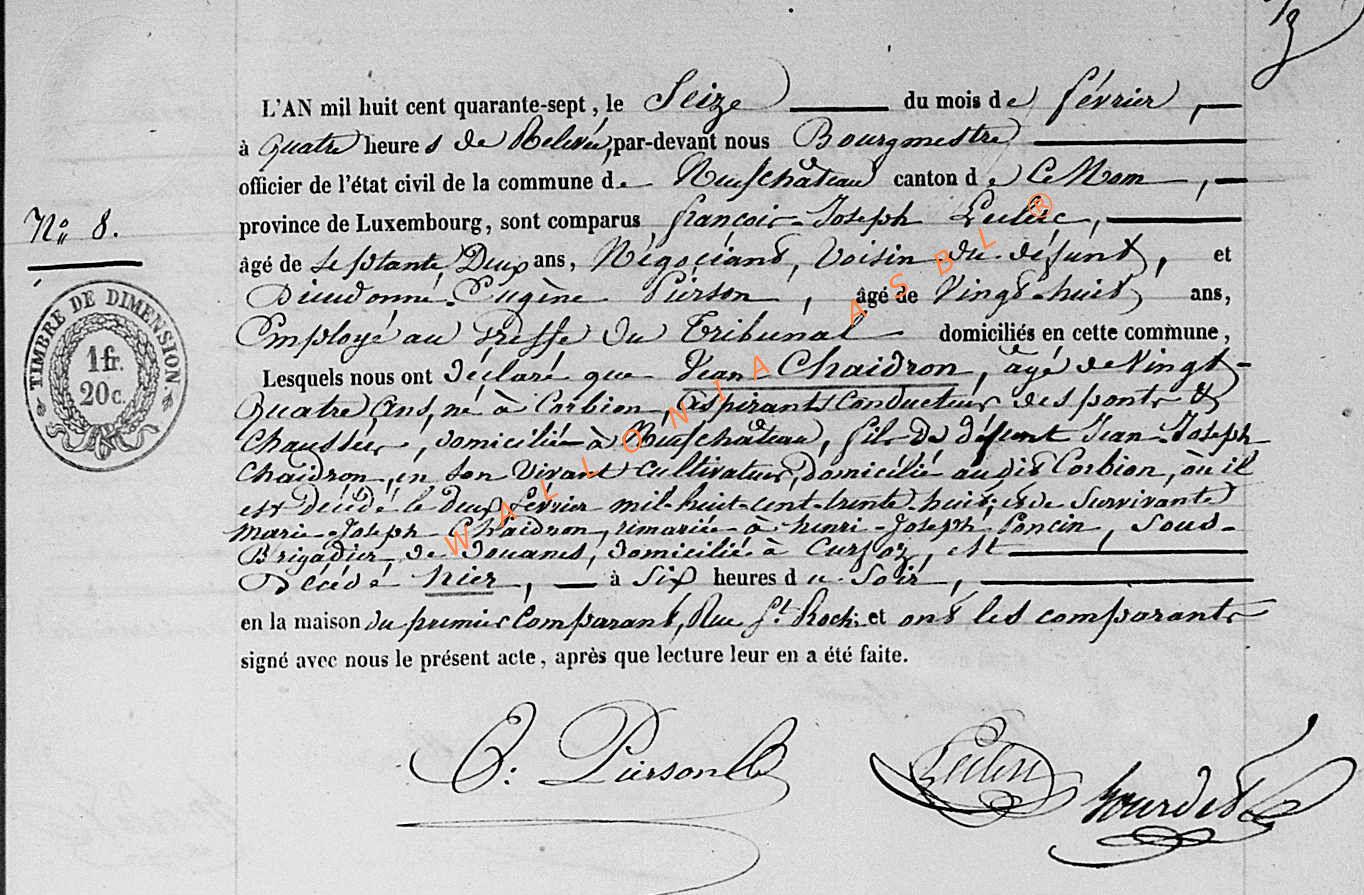 L'AN mil huit cent quarante-sept, le Seize du mois de février,
à quatre heures de Relevée, par-devant nous Bourgmestre
officier de l'état civil de la commune de Neufchâteau canton de Le Mem,
Nº 8.
province de Luxembourg, sont comparus françois-Joseph Leclerc,
âgé de septante Deux ans, Négociant, Voisin du défunt, et
Dieudonné-Eugène Pierson, âgé de Vingt-huit ans,
Employé au Greffe du Tribunal domiciliés en cette commune,
Lesquels nous ont déclaré que Jean Chaidron, âgé de Vingt-
Quatre Ans, né à Corbion, aspirant conducteur des ponts &
Chaussées, domicilié à Neufchâteau, fils de défunt Jean-Joseph
Chaidron, en son Vivant Cultivateur, domicilié au dit Corbion, où il
est décédé le deux février mil-huit-cent-trente-huit, et de Survivante
Marie-Joseph Chaidron, remariée à henri-Joseph Poncin, Sous-
Brigadier de Douanes, domicilié à Curfoz, est
Décédé hier, à Six heures du Soir,
en la maison du premier Comparant, Rue St Roch; et ont les comparants
signé avec nous le présent acte, après que lecture leur en a été faite.
TIMBRE DE DIMENSION.
1 fr.
20 c.
WALLONIA ASBL ®
E: Pierson
Leclerc
Gourdet